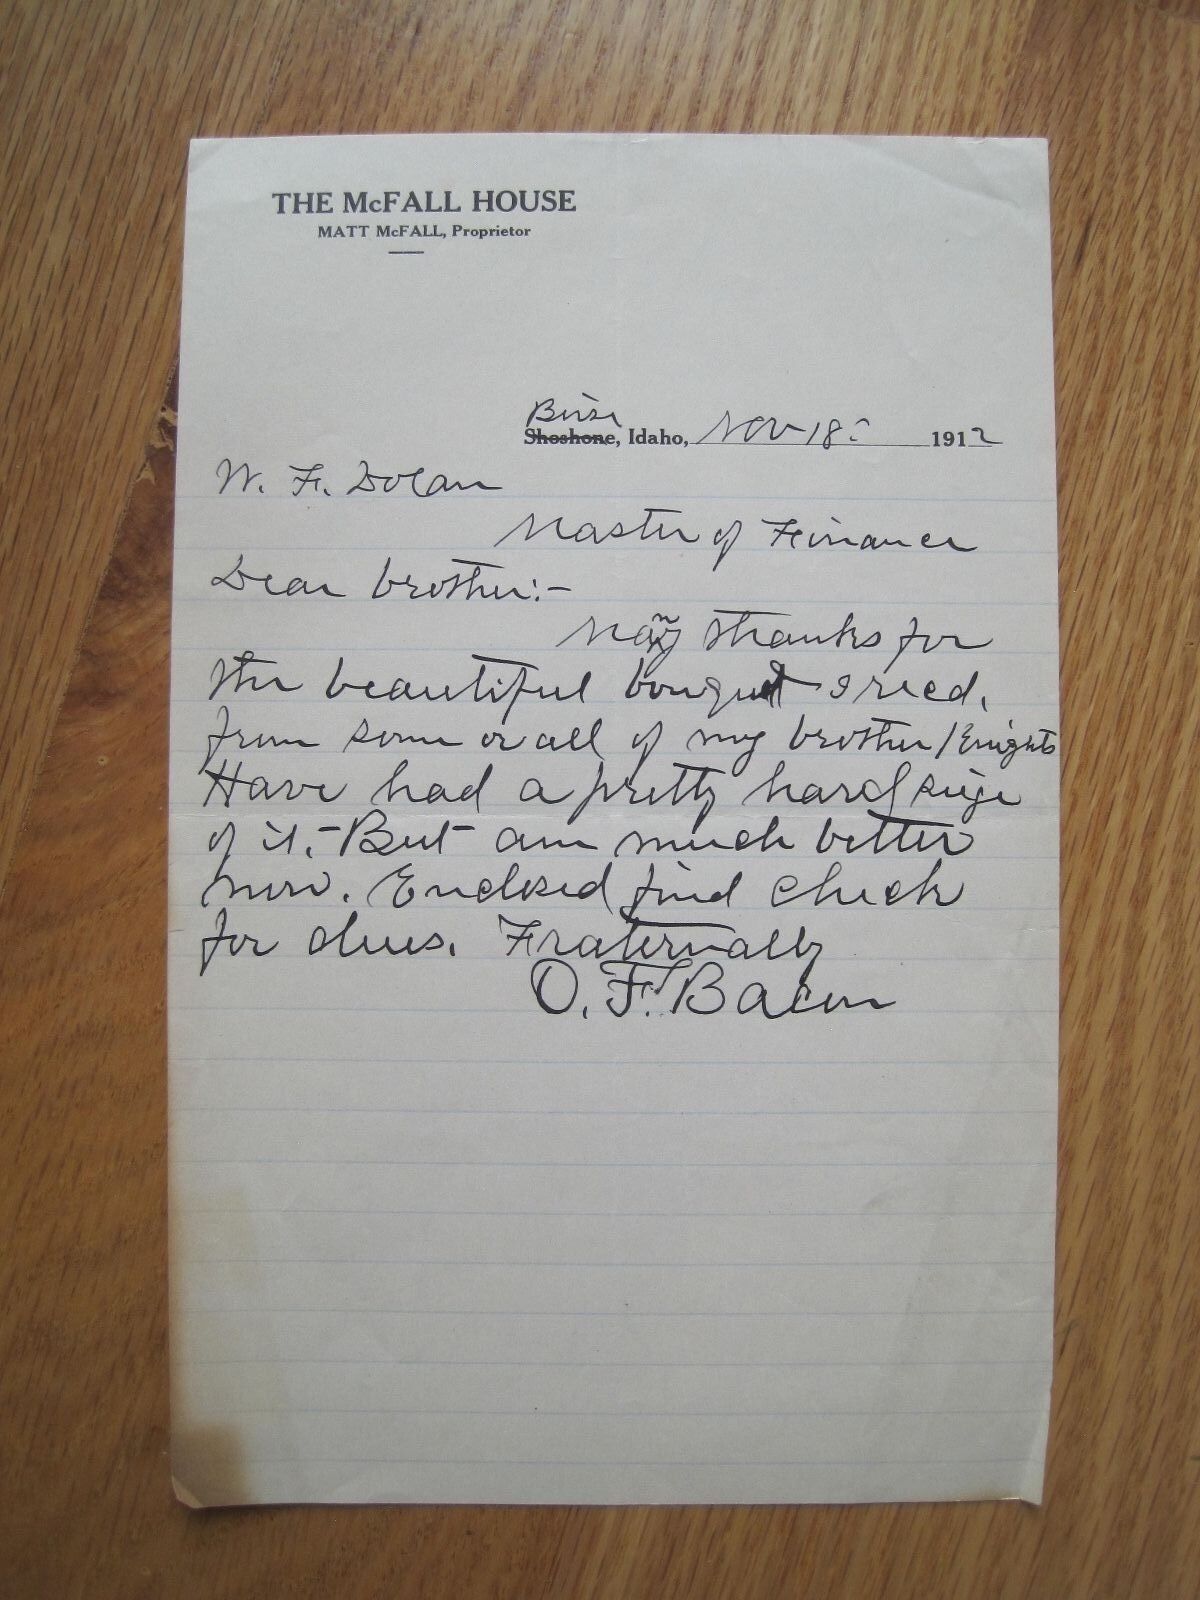 THE McFALL HOUSE
MATT McFALL, Proprietor
Boise
Shoshone, Idaho, Nov 18 1912
W. F. Dolan
Master of Finance
Dear brother:-
Many thanks for
the beautiful bouquet I recd.
from some or all of my brother Knights
Have had a pretty hard siege
of it,- But am much better
now. Enclosed find check
for dues. Fraternally
O. F. Bacon